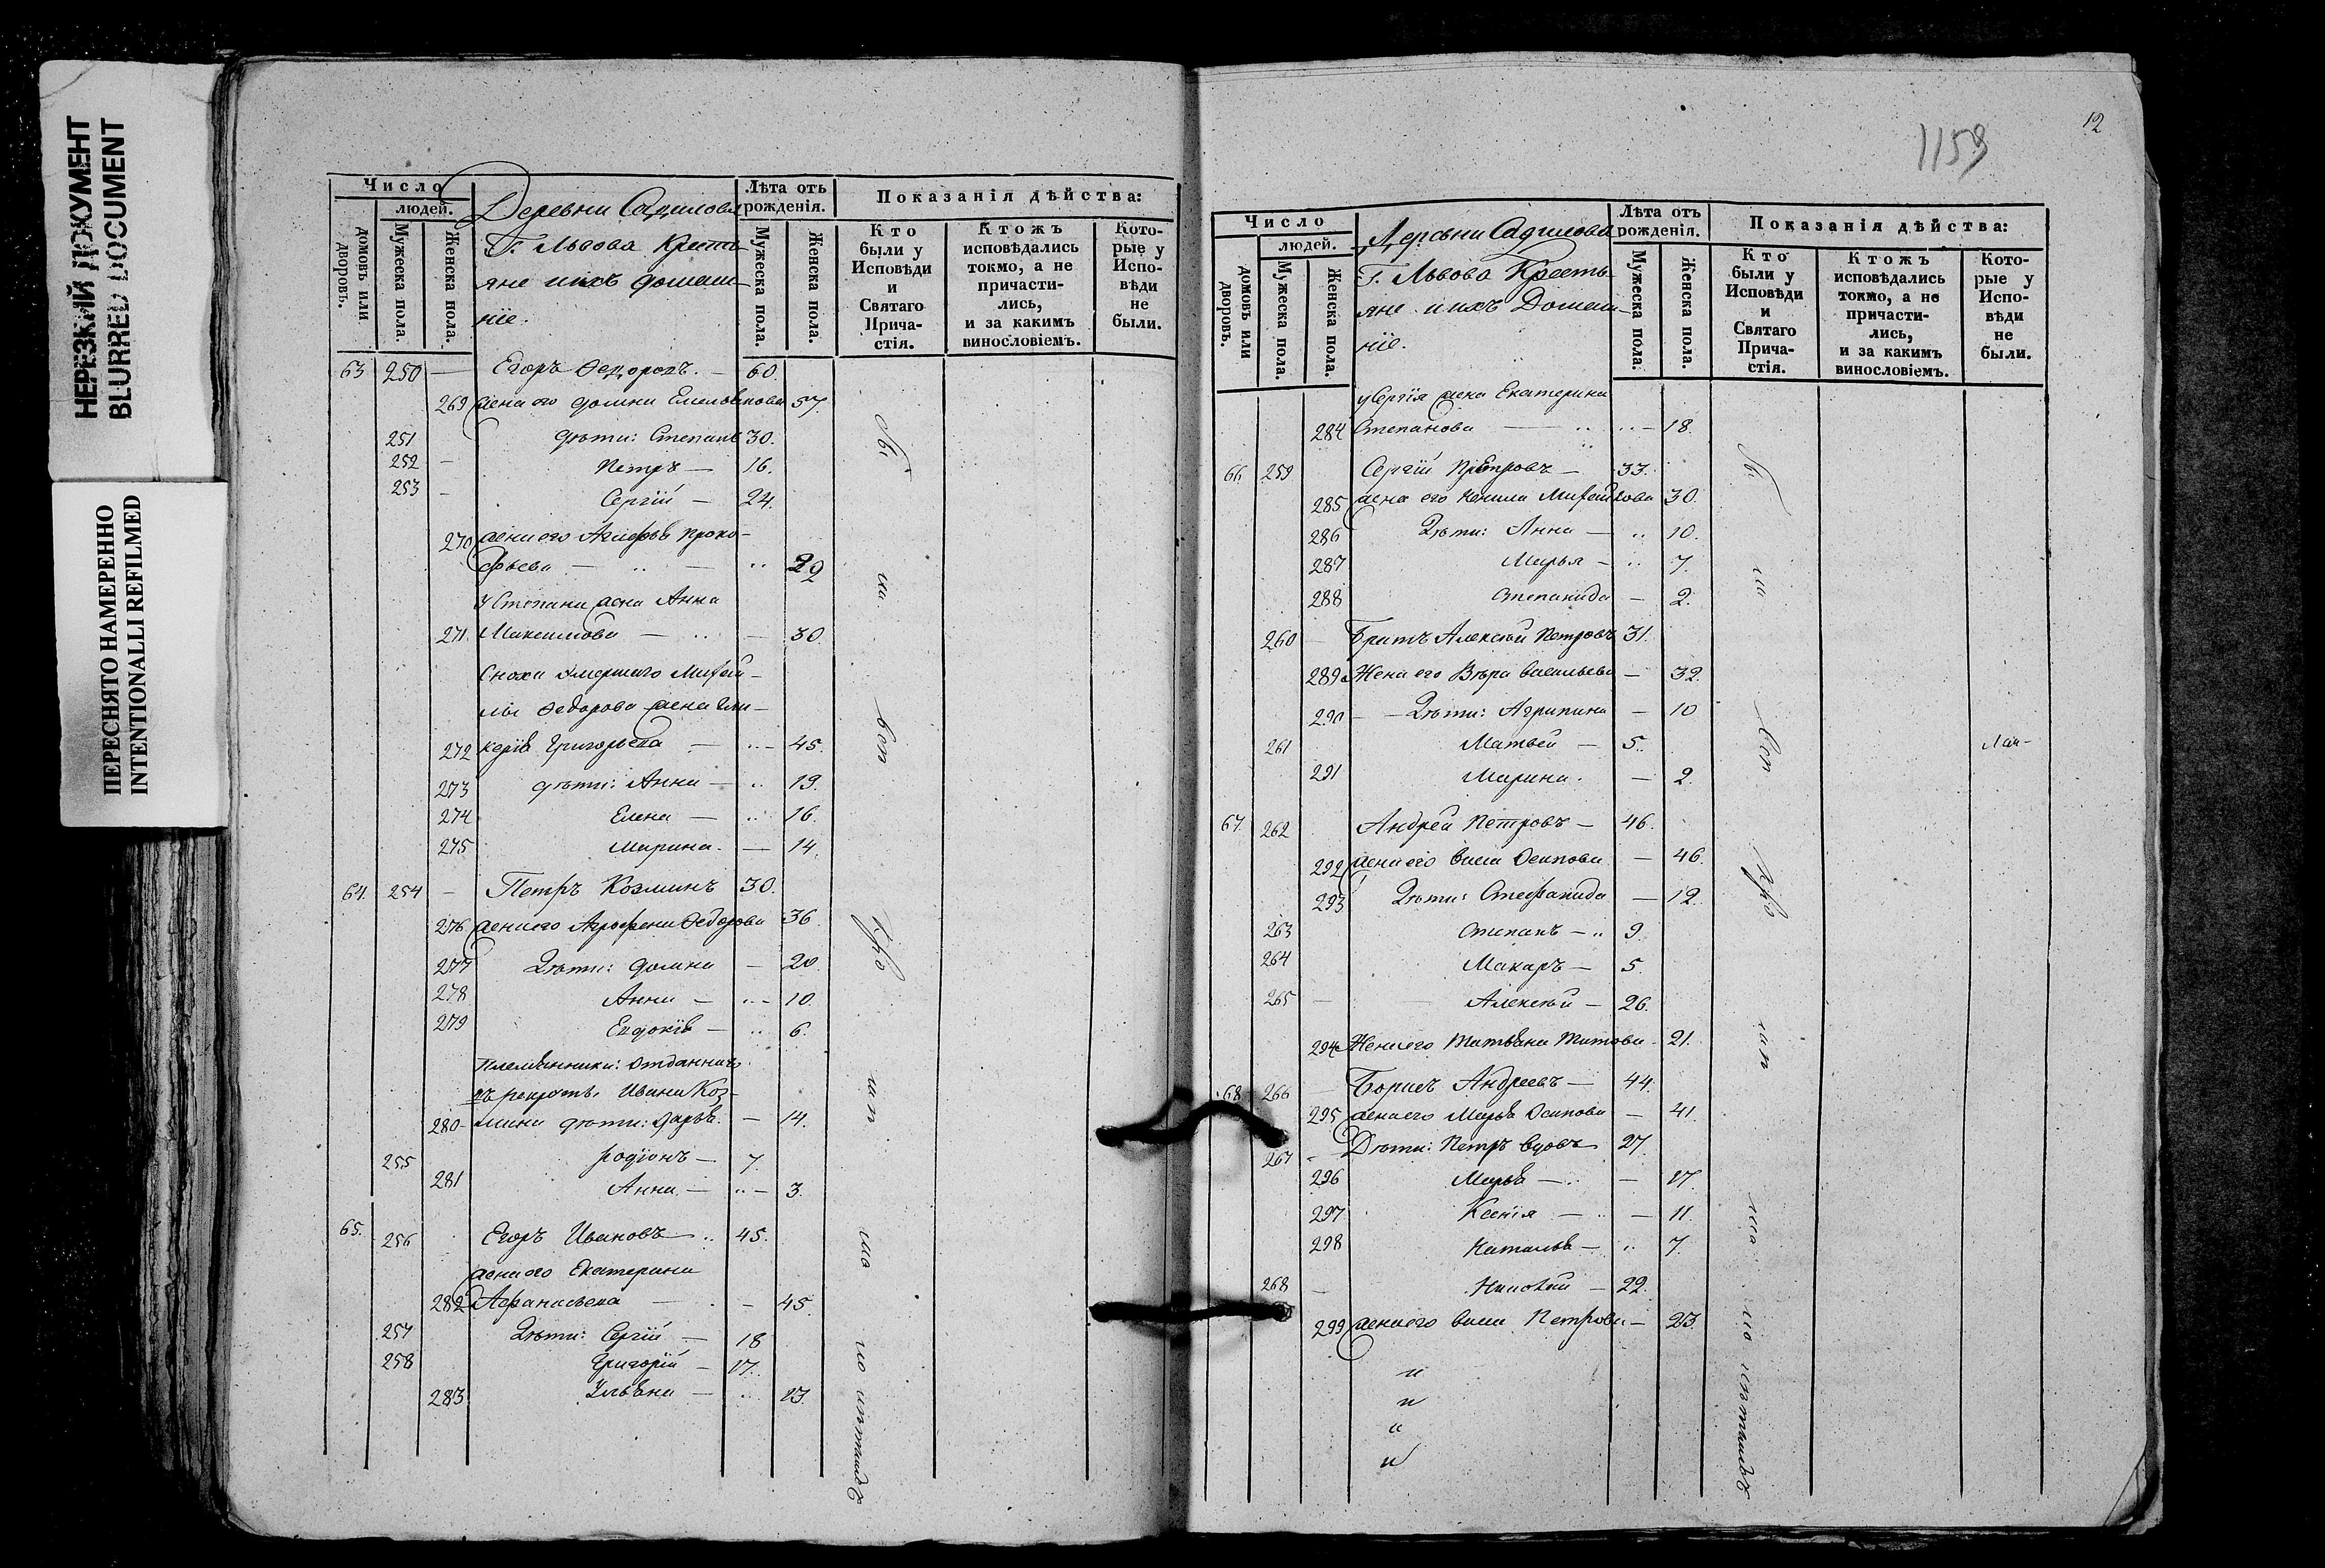 НЕРЕЗКИЙ ДОКУМЕНТ
BLURRED DOCUMENT
ПЕРЕСНЯТО НАМЕРЕННО
INTENTIONALLI REFILMED
Число
людей.
домовъ или дворовъ.
Мужеска пола.
Женска пола.
Деревни Садилова
Г. Львова Кресть-
яне и ихъ домаш-
ніе.
Лѣта отъ
рожденія.
Мужеска пола.
Женска пола.
Показанія дѣйства:
Кто
были у
Исповѣди
и
Святаго
Прича-
стія.
Ктожъ
исповѣдались
токмо, а не
причасти-
лись,
и за какимъ
винословіемъ.
Кото-
рые у
Испо-
вѣди
не
были.
63 250 — Егоръ Ѳедоровъ. — 60.
269 жена его Домна Емельянова 57.
251 дѣти: Степанъ 30.
252 — Петръ — 16.
253 — Сергій — 24.
270 жена его Агаѳья Проко-
фьева — .. — .. 22
у Степана жена Анна
271. Максимова — .. — 30.
Сноха умершаго Михаи-
лы Ѳедорова жена Гли-
272 керія Григорьева — ..— 45.
273 дѣти: Анна — .. 19.
274 Елена — .. 16.
275 Марина. — 14.
64. 254 — Петръ Козминъ 30.
276 жена его Агрофена Ѳедорова 36
277 Дѣти: Домна — 20.
278 Анна — ..— 10.
279 Евдокія — .. 6.
Племянники: отданнаго
въ рекруты Ивана Коз-
280 мина дѣти: Дарья. — 14.
255 Родіонъ — 7.
281 Анна. — ..— 3.
65. 256 Егоръ Ивановъ — .. 45.
жена его Екатерина
282 Афанасьева — . — 45.
257 Дѣти: Сергій — 18
258 Григорій — 17.
283 Ульяна — ... 13.
1159
12
Число
людей.
домовъ или дворовъ.
Мужеска пола.
Женска пола.
Деревни Садилова
Г. Львова Кресть-
яне и ихъ Домаш-
ніе.
Лѣта отъ
рожденія.
Мужеска пола.
Женска пола.
Показанія дѣйства:
Кто
были у
Исповѣди
и
Святаго
Прича-
стія.
Ктожъ
исповѣдались
токмо, а не
причасти-
лись,
и за какимъ
винословіемъ.
Кото-
рые у
Испо-
вѣди
не
были.
у Сергія жена Екатерина
284 Степанова — .. ..— 18.
66. 259 Сергій Петровъ — 33.
285 жена его Ненила Михайлова 30.
286 Дѣти: Анна — .. 10.
287 Марья — .. 7.
288 Степанида — 2.
260 — Братъ Алексѣй Петровъ 31.
289 Жена его Вѣра Васильева — 32.
290 — Дѣти: Агрипина — 10
261 Матвей — 5.
291 Марина. — 2.
67. 262 Андрей Петровъ — 46.
292 жена его Васа Осипова — 46.
293 Дѣти: Стефанида — 12.
263 Степанъ — .. 9.
264 Макаръ — 5.
265 — Алексѣй — 26.
294 Жена его Татьяна Титова 21.
68 266 — Борисъ Андреевъ — 44.
295 жена его Марья Осипова — 41.
267 — Дѣти: Петръ вдовъ 27.
296 Марья — .. — 17.
297 Ксенія — .. — 11.
298 Наталья — .. 7.
268 — Николай — 22.
299 жена его Васа Петрова — 23.
и
и
и
и